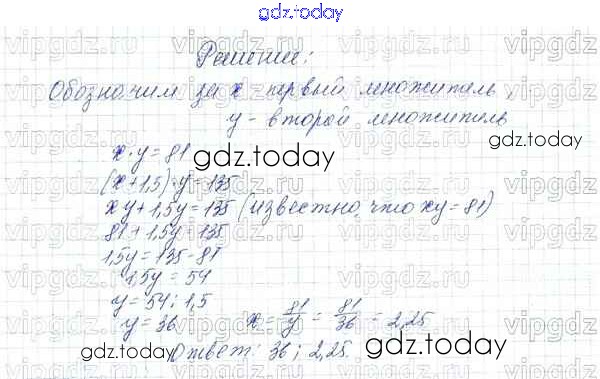 gdz.today
Решение:
Обозначим за x - первый множитель,
y - второй множитель
x · y = 81
(x + 1,5) · y = 135
xy + 1,5y = 135 (известно, что xy = 81)
81 + 1,5y = 135
1,5y = 135 - 81
1,5y = 54
y = 54 : 1,5
y = 36 x = 81/y = 81/36 = 2,25
Ответ: 36; 2,25.
vipgdz.ru
gdz.today
gdz.today
gdz.today
gdz.today
gdz.today